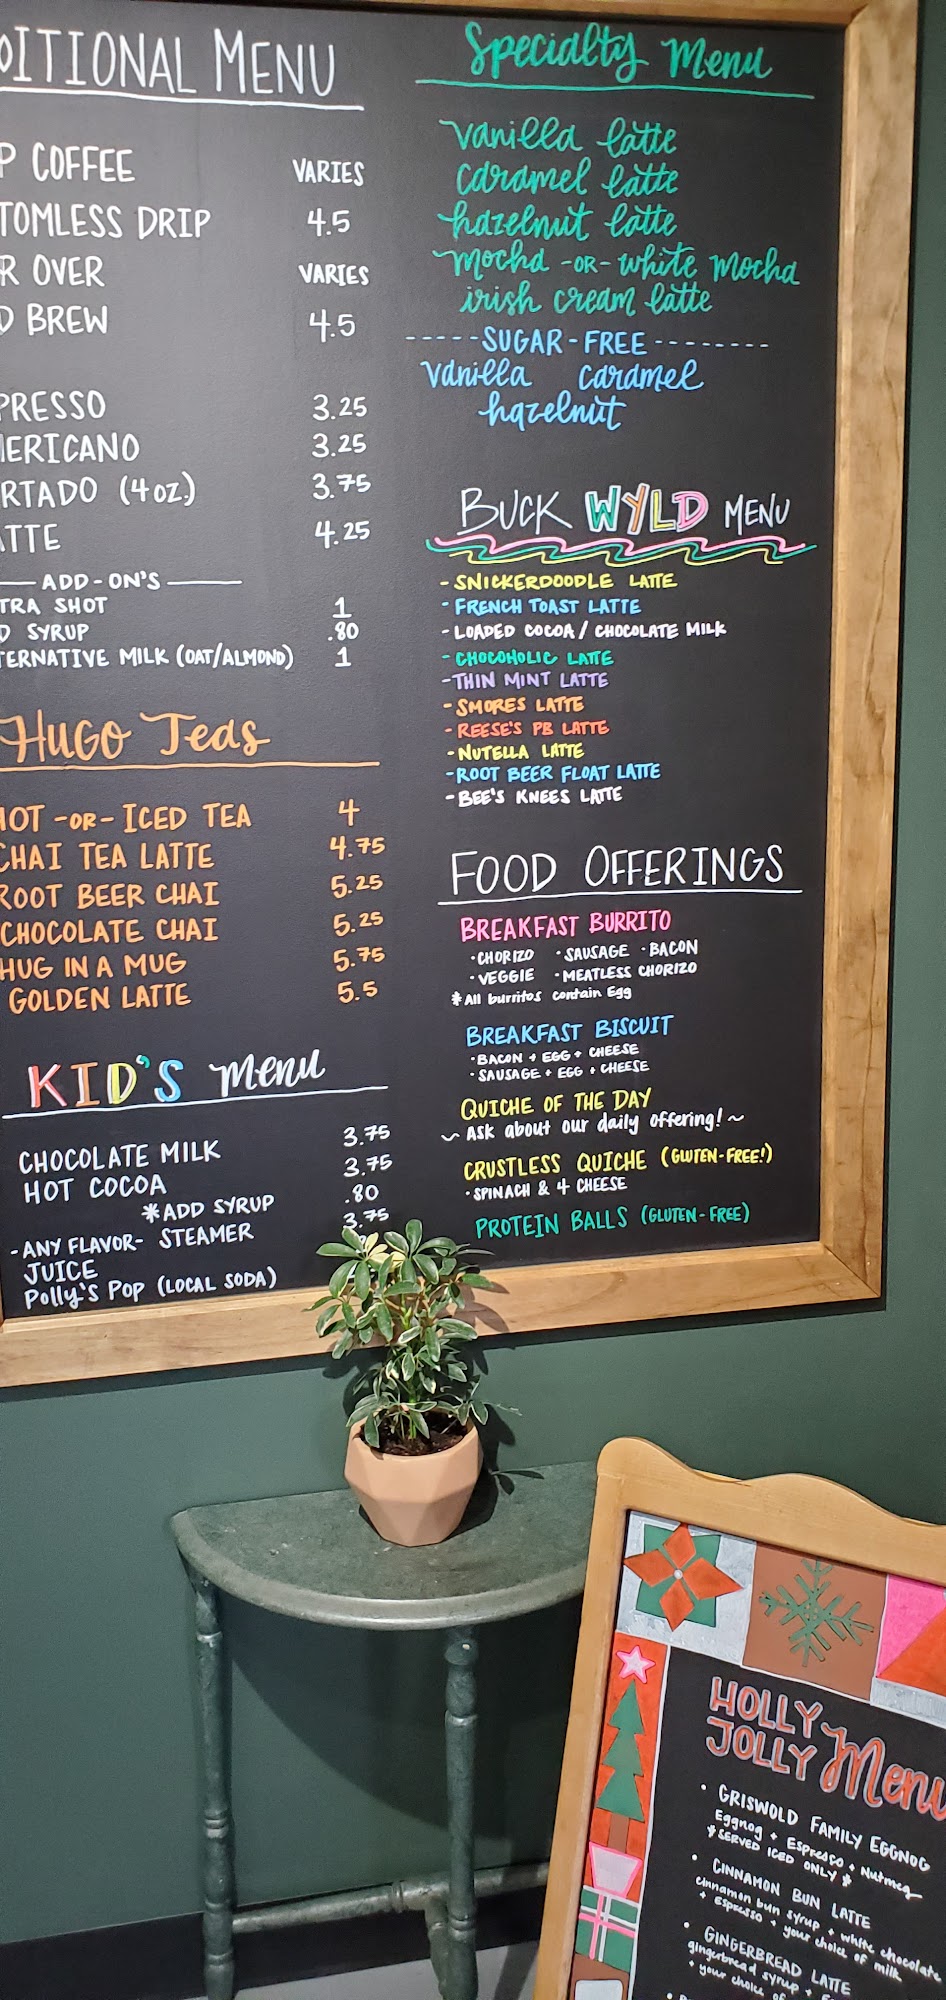 DITIONAL MENU
P COFFEE VARIES
TOMLESS DRIP 4.5
R OVER VARIES
D BREW 4.5
PRESSO 3.25
MERICANO 3.25
RTADO (4 OZ.) 3.75
ATTE 4.25
ADD-ON'S
TRA SHOT 1
D SYRUP .80
TERNATIVE MILK (OAT/ALMOND) 1
HUGO Teas
HOT -OR- ICED TEA 4
CHAI TEA LATTE 4.75
ROOT BEER CHAI 5.25
CHOCOLATE CHAI 5.25
HUG IN A MUG 5.75
GOLDEN LATTE 5.5
KID'S Menu
CHOCOLATE MILK 3.75
HOT COCOA 3.75
*ADD SYRUP .80
-ANY FLAVOR- STEAMER 3.75
JUICE
Polly's Pop (LOCAL SODA)
Specialty Menu
vanilla latte
caramel latte
hazelnut latte
mocha -OR- white mocha
irish cream latte
-----SUGAR-FREE--------
vanilla caramel
hazelnut
BUCK WYLD MENU
- SNICKERDOODLE LATTE
- FRENCH TOAST LATTE
- LOADED COCOA / CHOCOLATE MILK
- CHOCOHOLIC LATTE
- THIN MINT LATTE
- SMORES LATTE
- REESE'S PB LATTE
- NUTELLA LATTE
- ROOT BEER FLOAT LATTE
- BEE'S KNEES LATTE
FOOD OFFERINGS
BREAKFAST BURRITO
·CHORIZO ·SAUSAGE ·BACON
·VEGGIE ·MEATLESS CHORIZO
*All burritos contain Egg
BREAKFAST BISCUIT
·BACON + EGG + CHEESE
·SAUSAGE + EGG + CHEESE
QUICHE OF THE DAY
~ Ask about our daily offering! ~
CRUSTLESS QUICHE (GLUTEN-FREE!)
·SPINACH & 4 CHEESE
PROTEIN BALLS (GLUTEN-FREE)
HOLLY
JOLLY Menu
• GRISWOLD FAMILY EGGNOG
Eggnog + Espresso + Nutmeg
*SERVED ICED ONLY*
• CINNAMON BUN LATTE
cinnamon bun syrup + white chocolate
+ Espresso + your choice of milk
• GINGERBREAD LATTE
gingerbread syrup +
+ your choice of